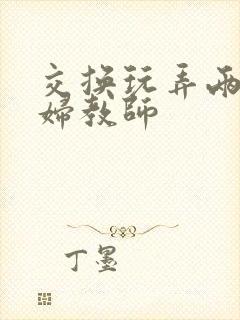 交换玩弄两
婦教師
丁墨